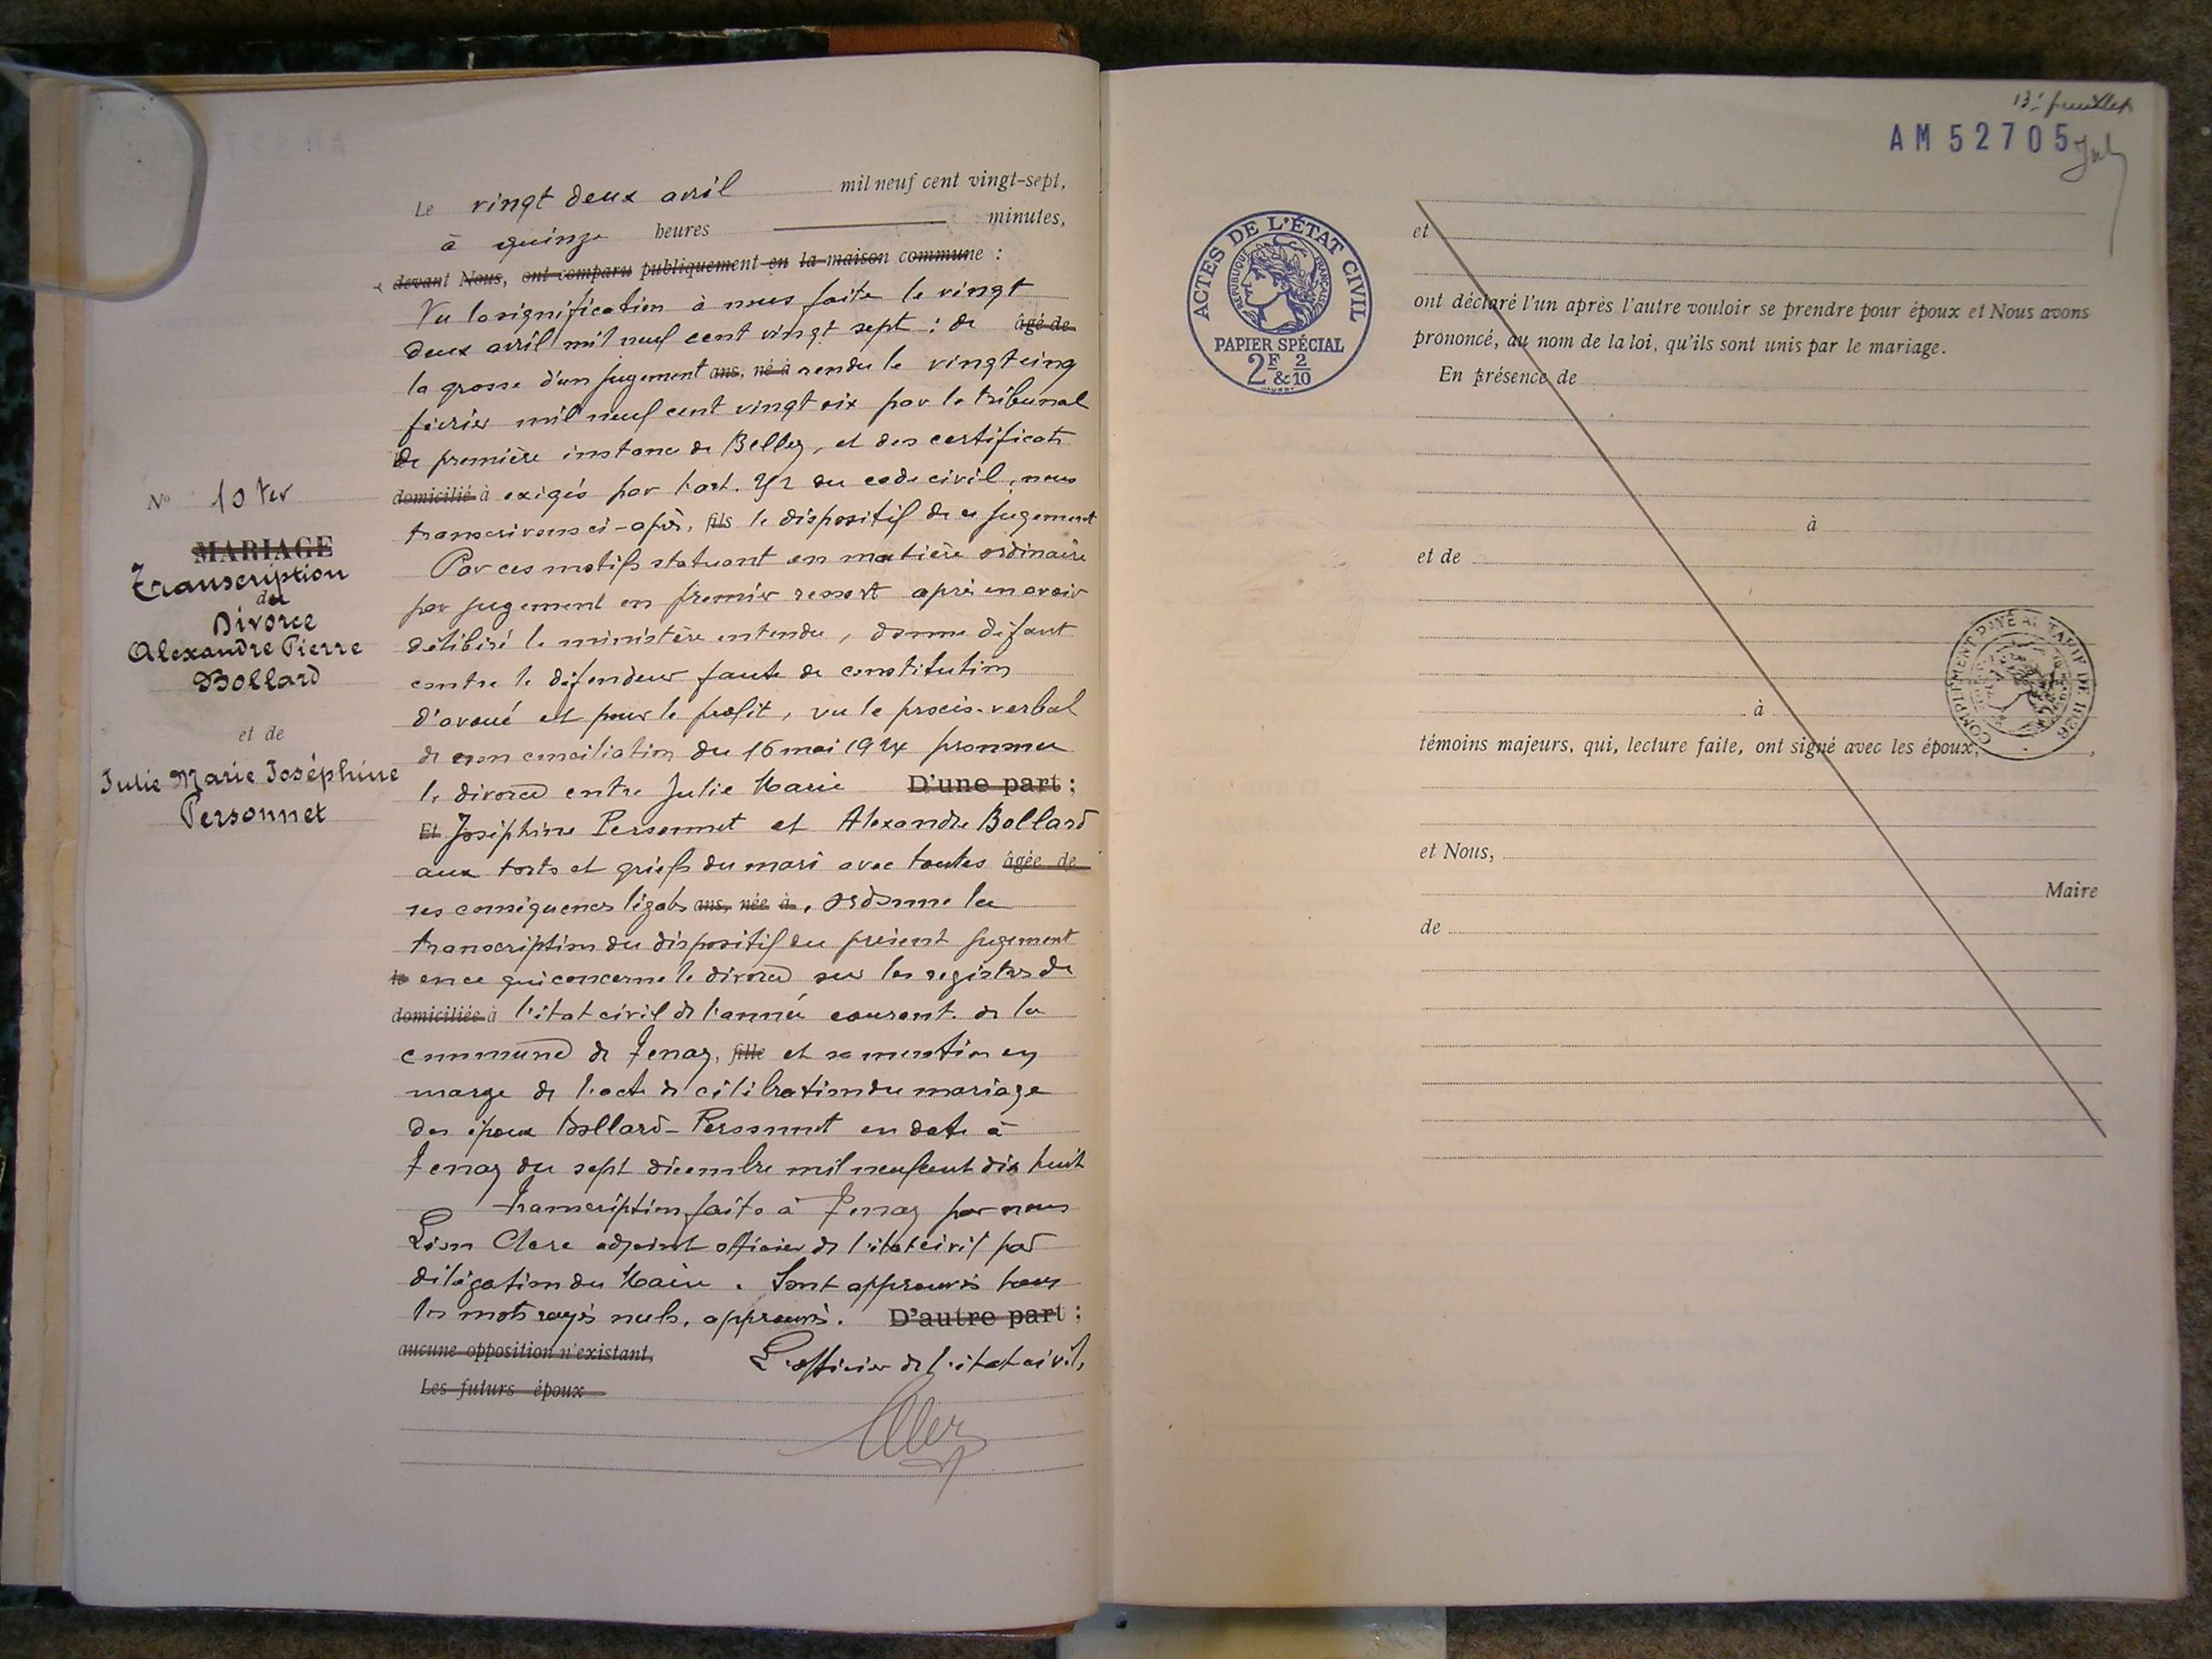 Le vingt deux avril mil neuf cent vingt-sept,
à quinze heures minutes,
devant Nous, ont comparu publiquement en la maison commune :
Vu la signification à nous faite le vingt
deux avril mil neuf cent vingt sept : de âgé de
la grosse d'un jugement ans, né à rendu le vingt cinq
février mil neuf cent vingt six par le tribunal
de première instance de Belley, et des certificats
domicilié à exigés par l'art. du code civil, nous
transcrivons ci-après, fils le dispositif de ce jugement
Par ces motifs statuant en matière ordinaire
par jugement en premier ressort après en avoir
délibéré le ministère entendu, donne défaut
contre le défendeur faute de constitution
d'avoué et pour le profit, vu le procès-verbal
de non conciliation du 16 mai 1924 prononce
le divorce entre Julie Marie D'une part ;
Et Joséphine Personnet et Alexandre Bollard
aux torts et griefs du mari avec toutes âgée de
ses conséquences légales ans, née à, ordonne la
transcription du dispositif du présent jugement
le en ce qui concerne le divorce sur les registres de
domiciliée à l'état civil de l'année courant. de la
commune de Tenay, fille et sa mention en
marge de l'acte de célébration du mariage
des époux Bollard-Personnet en date à
Tenay du sept décembre mil neuf cent dix huit
transcription faite à Tenay par nous
Léon Clerc adjoint officier de l'état civil par
délégation du Maire. Sont approuvés tous
les mots rayés nuls, approuvés. D'autre part ;
aucune opposition n'existant, L'officier de l'état civil,
Les futurs époux
N° 10 ter
MARIAGE
Transcription
du
Divorce
Alexandre Pierre
Bollard
et de
Julie Marie Joséphine
Personnet
13e feuillet
AM 52705
ACTES DE L'ÉTAT CIVIL
RÉPUBLIQUE FRANÇAISE
PAPIER SPÉCIAL
2F & 2/10
et
ont déclaré l'un après l'autre vouloir se prendre pour époux et Nous avons
prononcé, au nom de la loi, qu'ils sont unis par le mariage.
En présence de
à
et de
COMPLÉMENT PAYÉ AU TARIF DE 1926
à
témoins majeurs, qui, lecture faite, ont signé avec les époux,
et Nous,
Maire
de